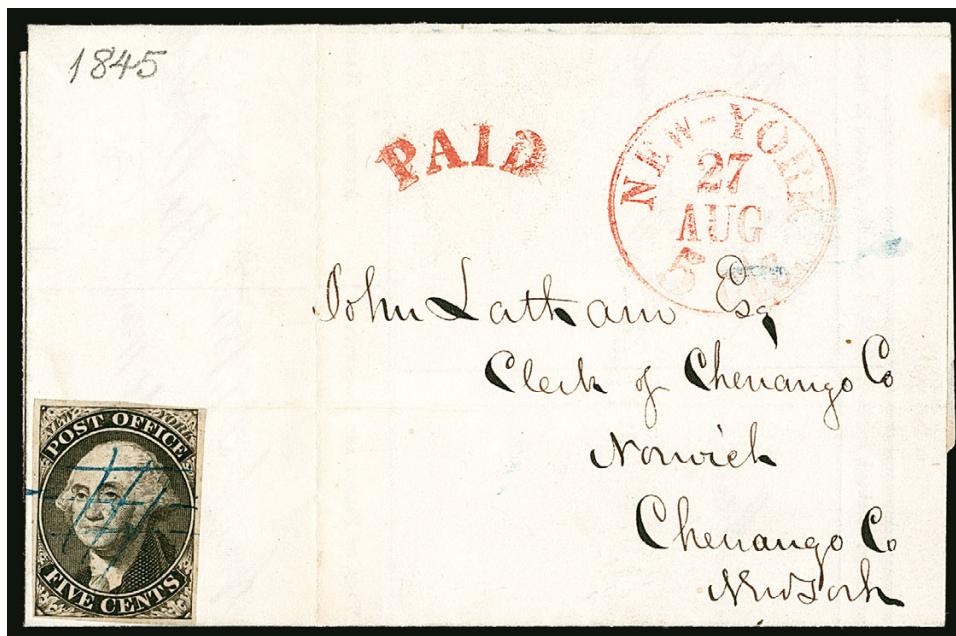 1845
PAID
NEW-YORK
27
AUG
5 cts
John Latham Esq
Clerk of Chenango Co
Norwich
Chenango Co
New York
NEW YORK
POST OFFICE
FIVE CENTS